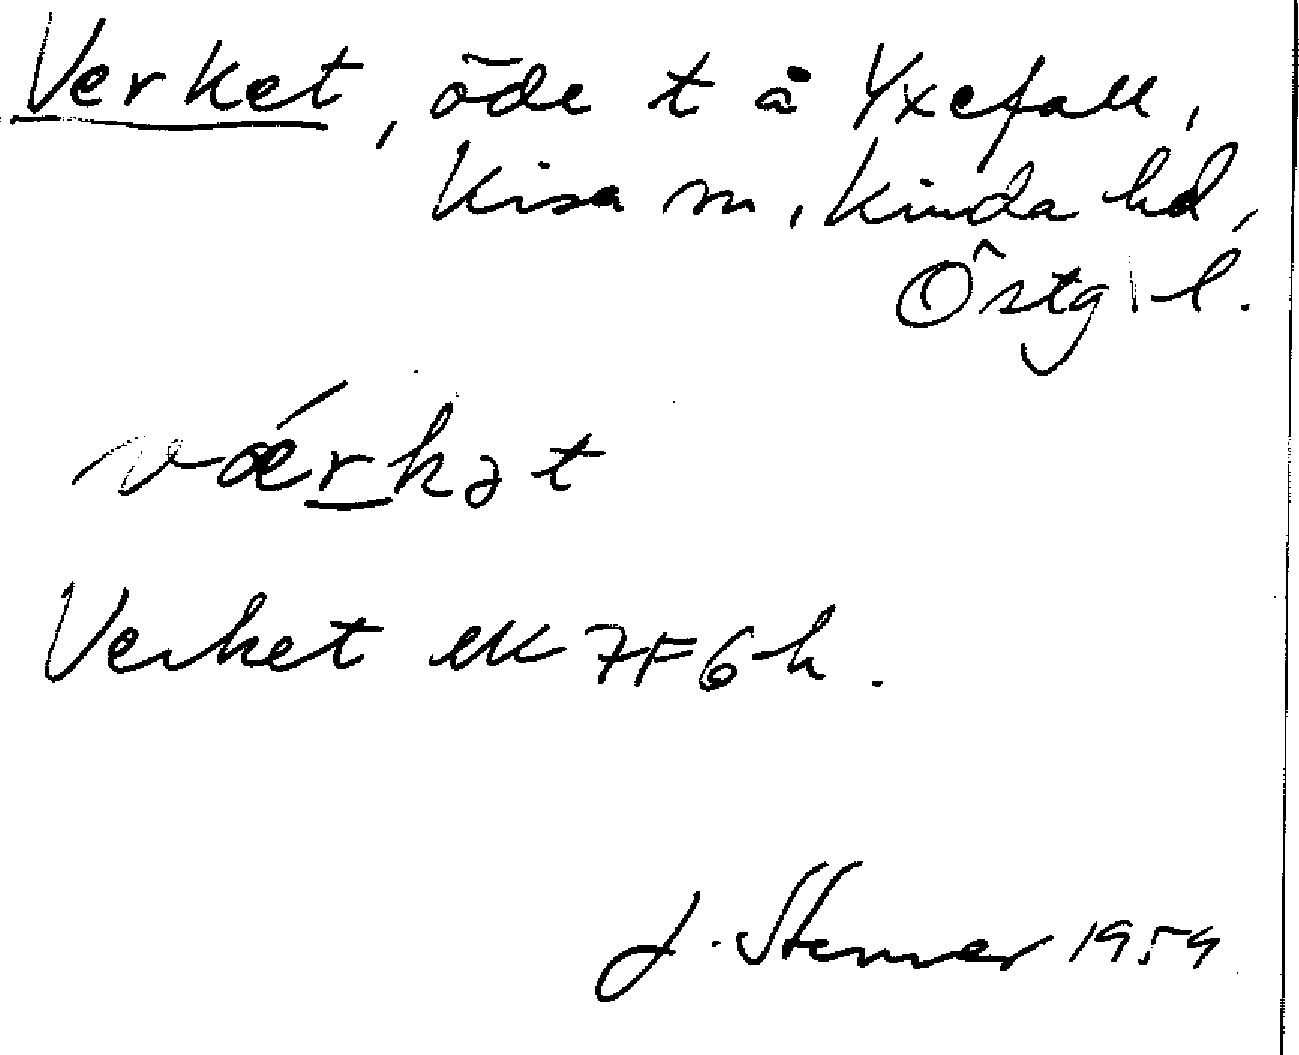 Verket, öde t å Yxefall,
Kisa sn, Kinda hd,
Östg l.
vǽrkət
Verket ek 7F6h.
J. Stenver 1959